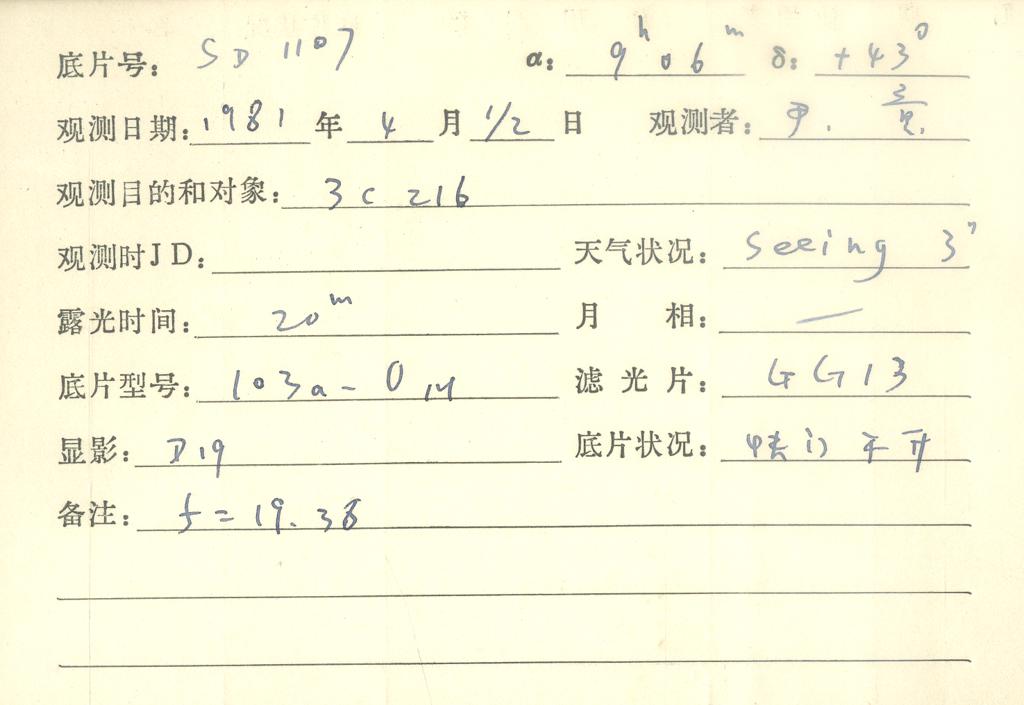 底片号: SD 1107 α: 9h 06m δ: +43°
观测日期: 1981 年 4 月 1/2 日 观测者:
观测目的和对象: 3C 216
观测时JD: 天气状况: seeing 3"
露光时间: 20m 月 相: —
底片型号: 103a-O 滤光片: GG13
显影: D19 底片状况: 快门不开
备注: f=19.38